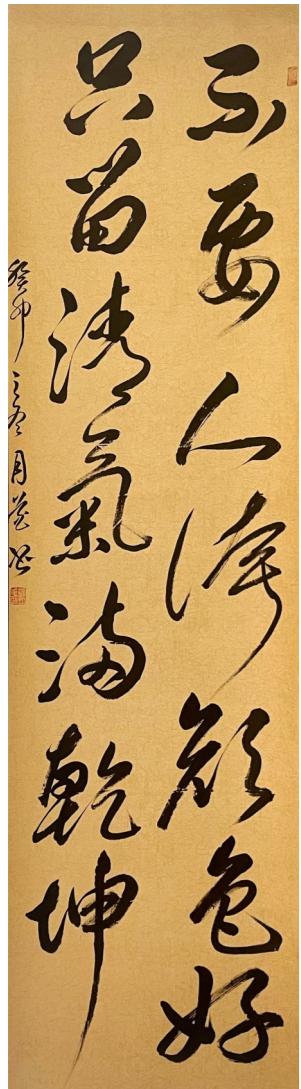 不要人誇顏色好
只留清氣滿乾坤
癸卯之冬月